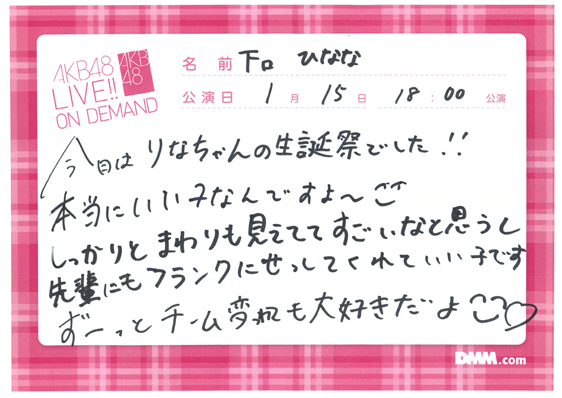 AKB48
LIVE!!
ON DEMAND
AKB
48
名前 下口 ひなな
公演日 1月 15日 18:00 公演
今日は りなちゃんの生誕祭でした!!
本当にいい子なんですよ〜
しっかりと まわりも見えてて すごいなと思うし
先輩にもフランクにせっしてくれていい子です
ずーっと チーム変わっても大好きだよ
DMM.com